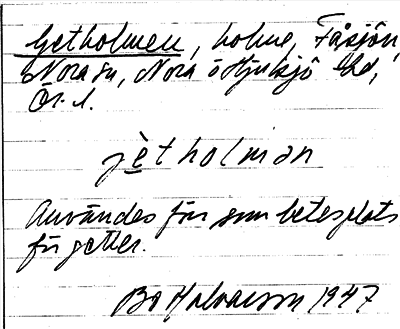 Getholmen, holme, Fåsjön
Nora sn, Nora o Hjulsjö bd,
Ör. l.
jètholman
Användes förr som betesplats
för getter.
Bo Halvarson 1947